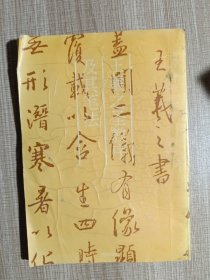 王羲之書
盖聞二儀有像顯
覆載以含生四時
無形潛寒暑以化